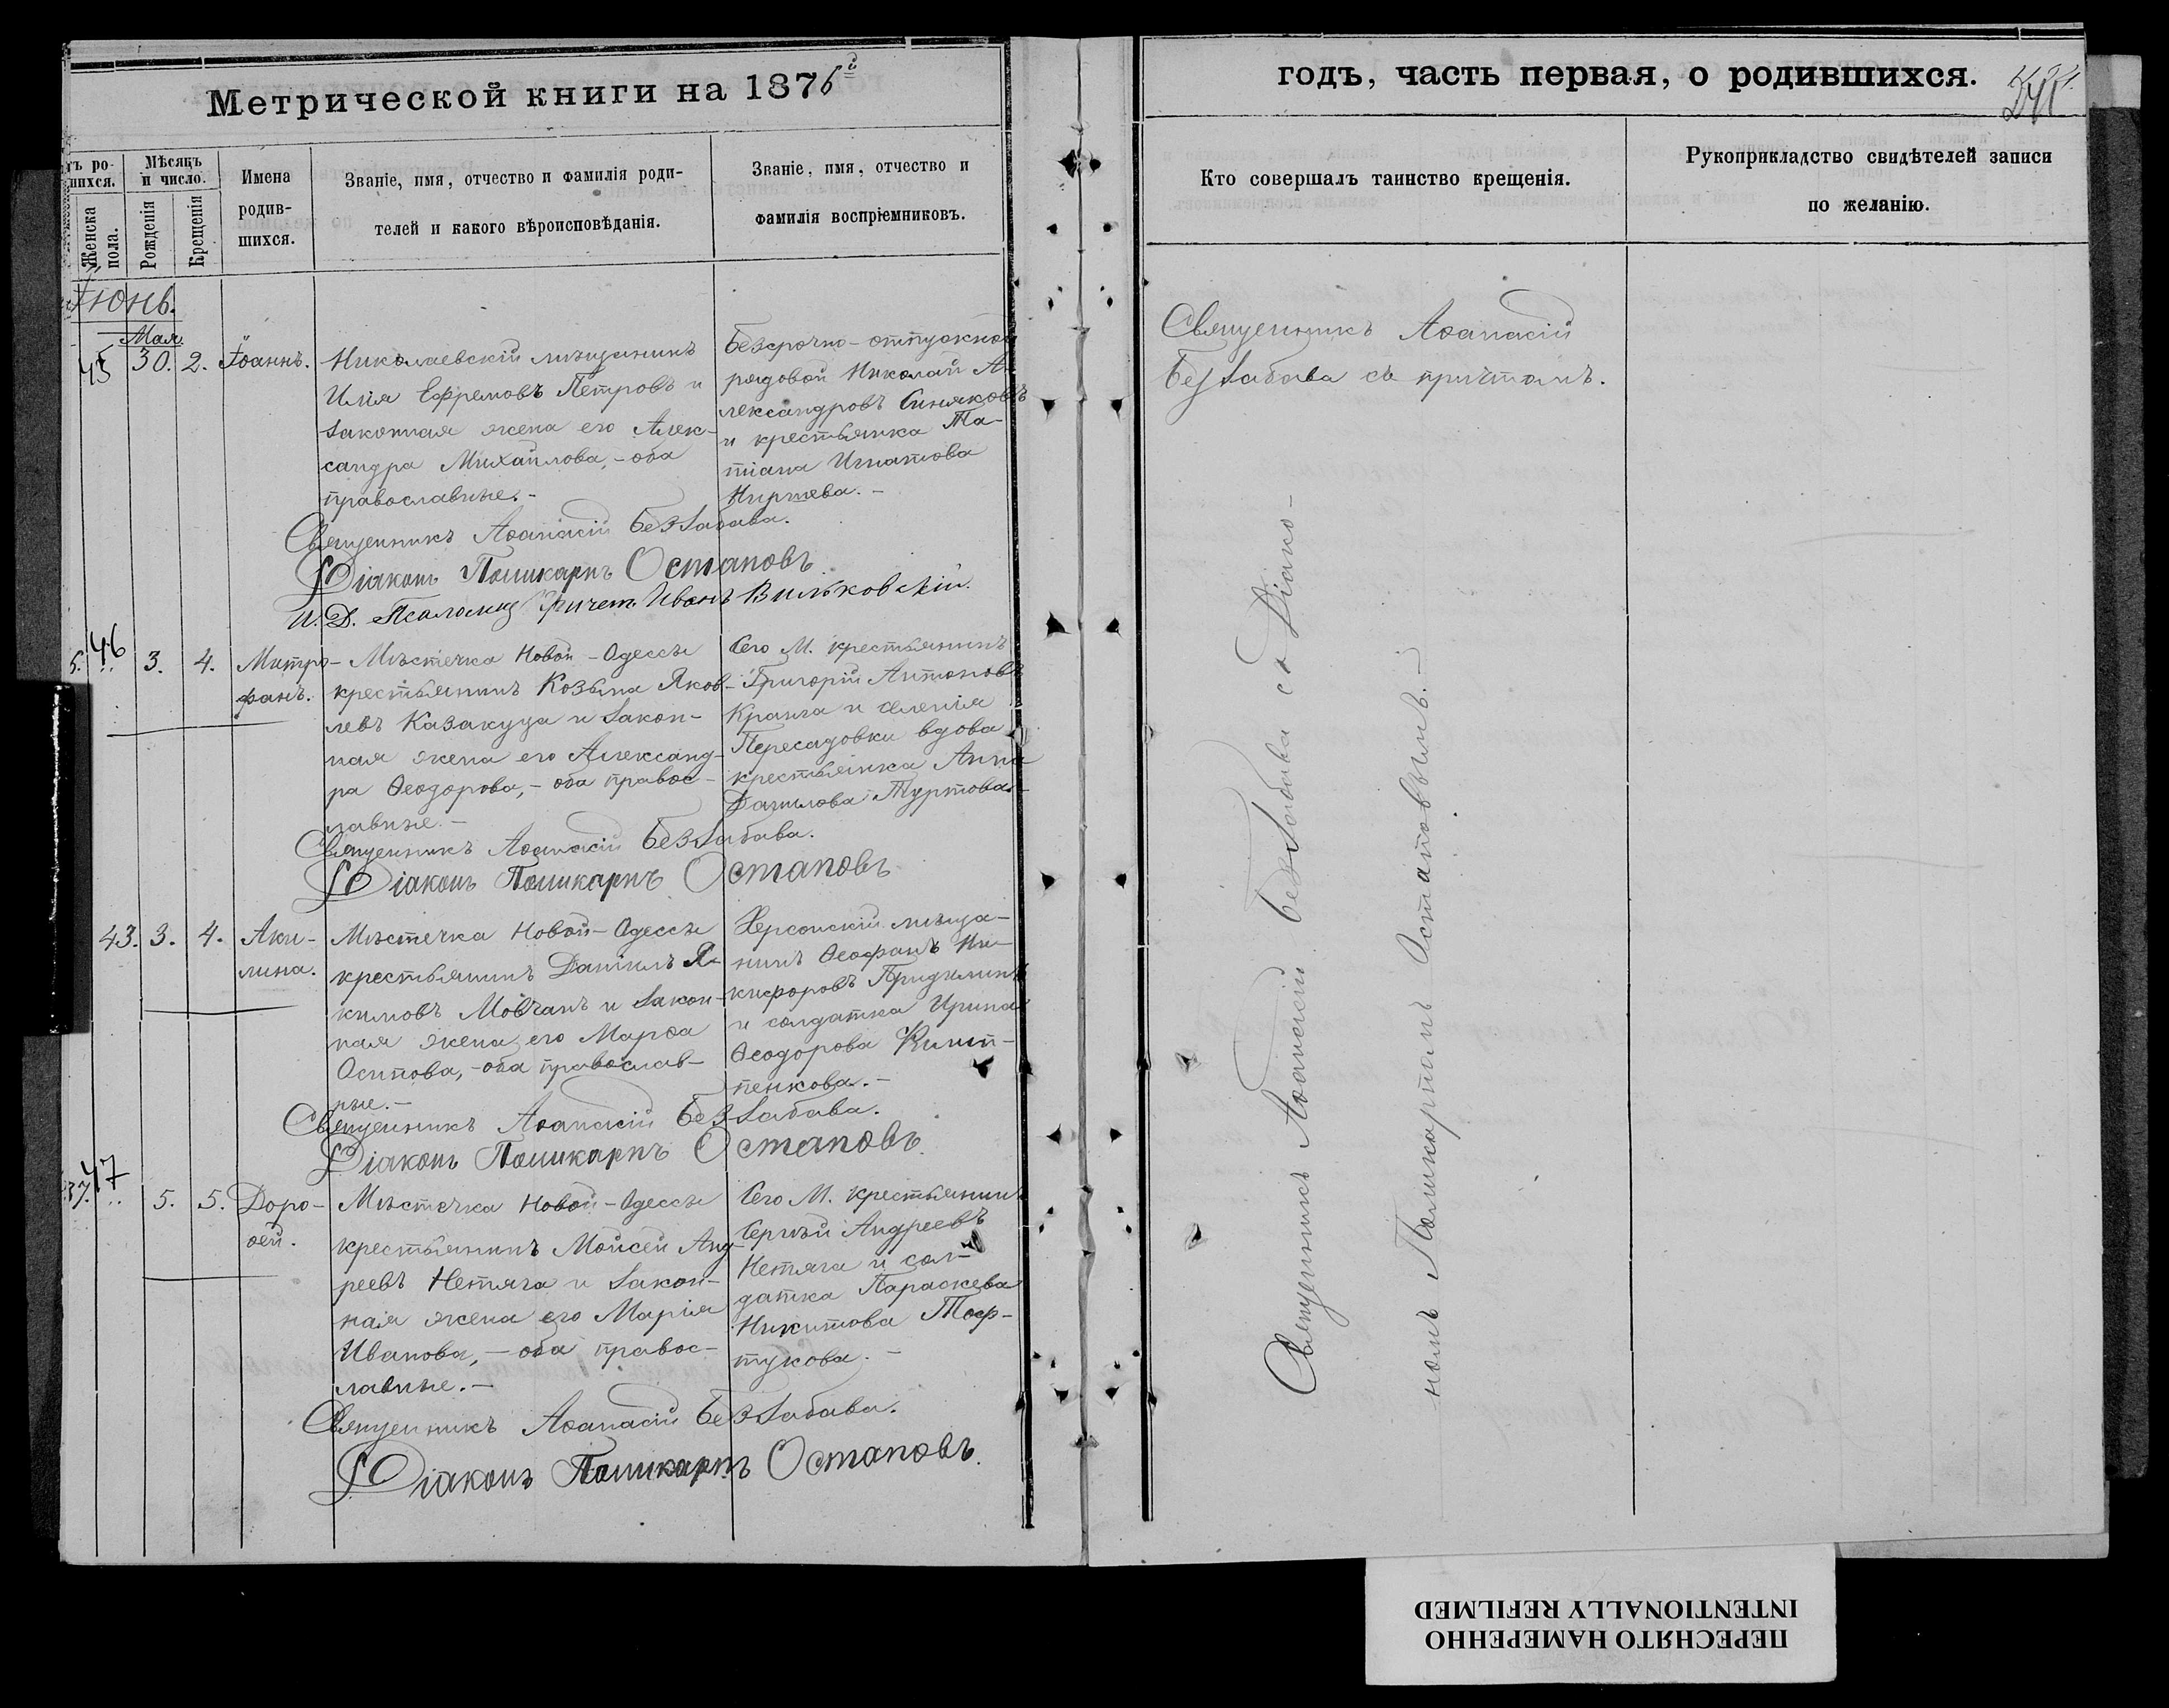 Метрической книги на 1876й
годъ, часть первая, о родившихся.
Мѣсяцъ
и число.
Женска
пола.
Рожденія
Крещенія
Имена
родив-
шихся.
Званіе, имя, отчество и фамилія роди-
телей и какого вѣроисповѣданія.
Званіе, имя, отчество и
фамилія воспріемниковъ.
Кто совершалъ таинство крещенія.
Рукоприкладство свидѣтелей записи
по желанію.
Іюнь.
Мая
45 30. 2. Іоаннъ.
Николаевскій мѣщанинъ
Илія Ефремовъ Петровъ и
законная жена его Алек-
сандра Михайлова,-оба
православные.-
Безсрочно-отпускной
рядовой Николай А-
лександровъ Синяковъ
и крестьянка Та-
тіана Игнатова
Священникъ Аѳанасій Беззабава.
Діаконъ Поликарпъ Остаповъ.
И. Д. Псаломщ Причет. Иванъ Вильковскій.
46 3. 4. Митро-
фанъ.
Мѣстечка Новой-Одессы
крестьянинъ Козьма Яков-
левъ Казакуца и закон-
ная жена его Александ-
ра Ѳеодорова,-оба правос-
лавные.-
Сего М. крестьянинъ
Григорій Антоновъ
и селенія
Пересадовки вдова
крестьянка Анна
Данилова Туртова-
Священникъ Аѳанасій Беззабава.
Діаконъ Поликарпъ Остаповъ
43. 3. 4. Аки-
лина.
Мѣстечка Новой-Одессы
крестьянинъ Даніилъ Я-
кимовъ Мовчанъ и закон-
ная жена его Марѳа
Осипова,-оба православ-
ные.-
Херсонскій мѣща-
нинъ Ѳеофанъ Ни-
кифоровъ
и солдатка Ирина
Ѳеодорова
пенкова.-
Священникъ Аѳанасій Беззабава.
Діаконъ Поликарпъ Остаповъ.
47 5. 5. Доро-
ѳей.
Мѣстечка Новой-Одессы
крестьянинъ Мойсей Анд-
реевъ Нетяга и закон-
ная жена его Марія
Иванова,-оба правос-
лавные.-
Сего М. крестьянинъ
Сергѣй Андреевъ
Нетяга и сол-
датка Параскева
Никитова
тукова.-
Священникъ Аѳанасій Беззабава.
Діаконъ Поликарпъ Остаповъ.
Священникъ Аѳанасій
Беззабава съ причтомъ.
Священникъ Аѳанасій Беззабава съ Діако-
номъ Поликарпомъ Остаповымъ.-
ПЕРЕСНЯТО НАМЕРЕННО
INTENTIONALLY REFILMED